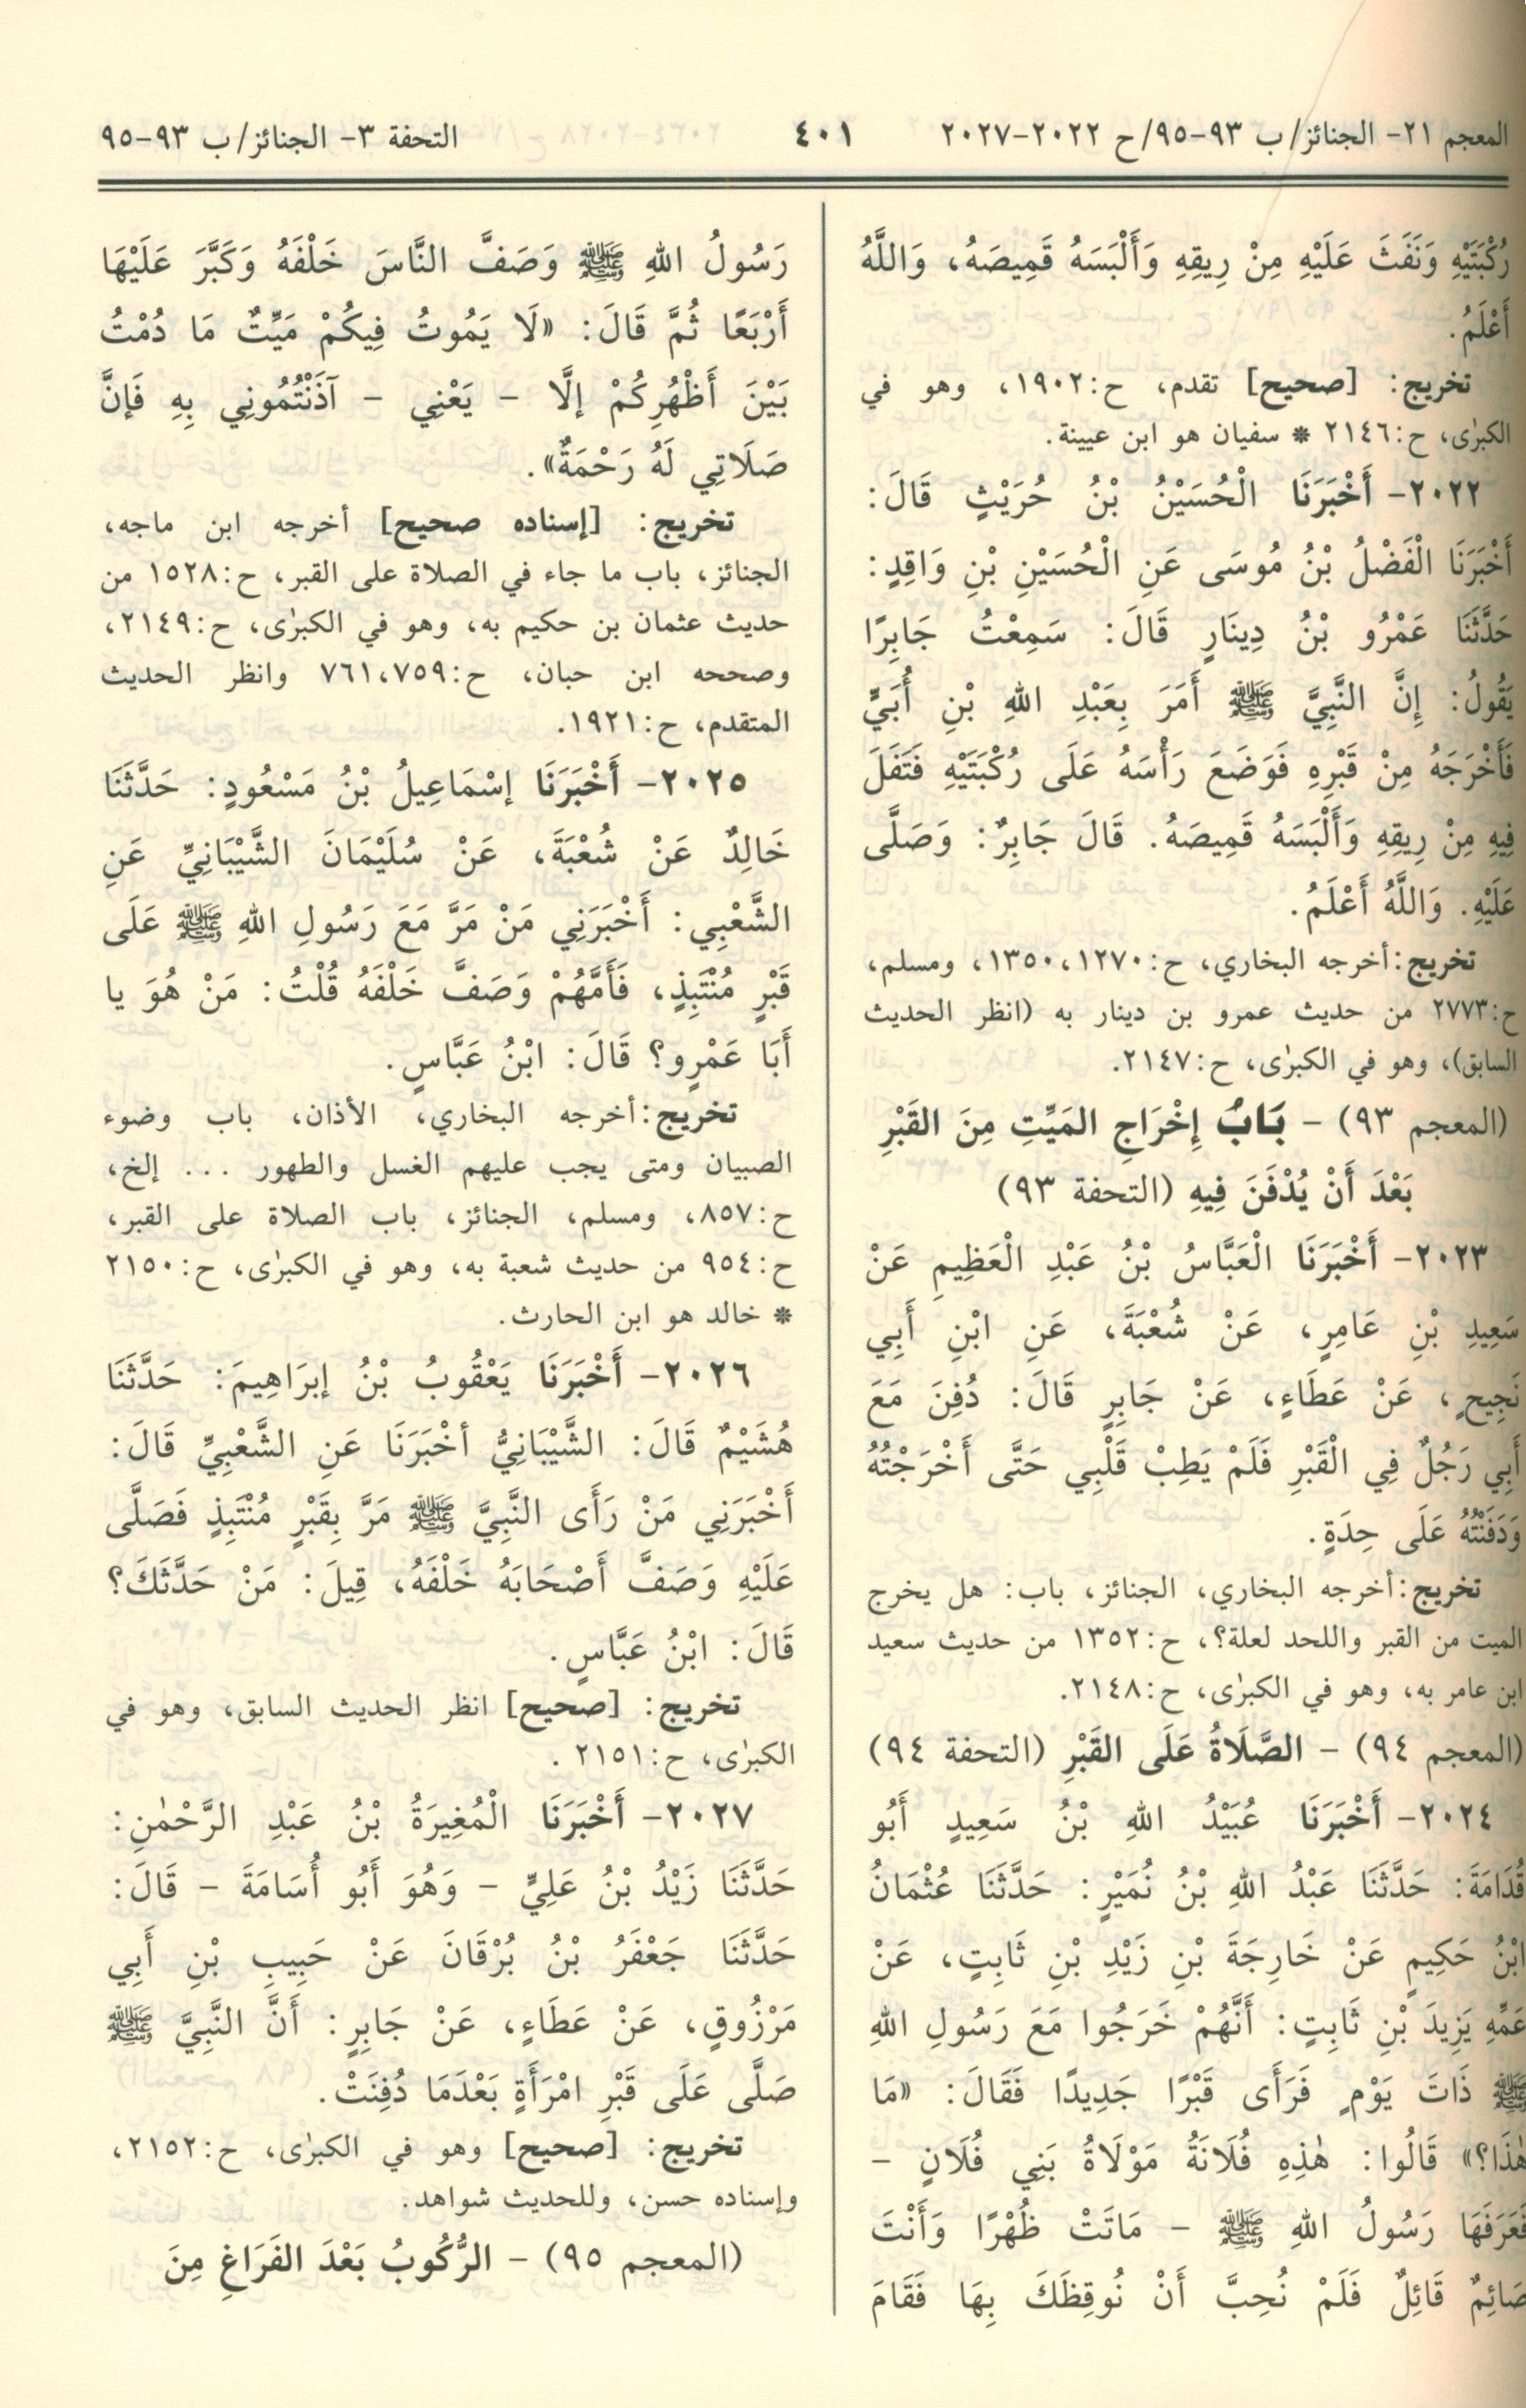 المعجم ٢١- الجنائز/ ب ٩٣-٩٥/ ح ٢٠٢٢-٢٠٢٧ ٤٠١ التحفة ٣- الجنائز/ ب ٩٣-٩٥
رُكْبَتَيْهِ وَنَفَثَ عَلَيْهِ مِنْ رِيقِهِ وَأَلْبَسَهُ قَمِيصَهُ، وَاللَّهُ
أَعْلَمُ.
تخريج: [صحيح] تقدم، ح:١٩٠٢، وهو في
الكبرٰى، ح:٢١٤٦ * سفيان هو ابن عيينة.
٢٠٢٢- أَخْبَرَنَا الْحُسَيْنُ بْنُ حُرَيْثٍ قَالَ:
أَخْبَرَنَا الْفَضْلُ بْنُ مُوسَى عَنِ الْحُسَيْنِ بْنِ وَاقِدٍ:
حَدَّثَنَا عَمْرُو بْنُ دِينَارٍ قَالَ: سَمِعْتُ جَابِرًا
يَقُولُ: إِنَّ النَّبِيَّ ﷺ أَمَرَ بِعَبْدِ اللهِ بْنِ أُبَيٍّ
فَأَخْرَجَهُ مِنْ قَبْرِهِ فَوَضَعَ رَأْسَهُ عَلَى رُكْبَتَيْهِ فَتَفَلَ
فِيهِ مِنْ رِيقِهِ وَأَلْبَسَهُ قَمِيصَهُ. قَالَ جَابِرٌ: وَصَلَّى
عَلَيْهِ. وَاللَّهُ أَعْلَمُ.
تخريج:أخرجه البخاري، ح:١٢٧٠،١٣٥٠، ومسلم،
ح:٢٧٧٣ من حديث عمرو بن دينار به (انظر الحديث
السابق)، وهو في الكبرٰى، ح:٢١٤٧.
(المعجم ٩٣) - بَابُ إِخْرَاجِ المَيِّتِ مِنَ القَبْرِ
بَعْدَ أَنْ يُدْفَنَ فِيهِ (التحفة ٩٣)
٢٠٢٣- أَخْبَرَنَا الْعَبَّاسُ بْنُ عَبْدِ الْعَظِيمِ عَنْ
سَعِيدِ بْنِ عَامِرٍ، عَنْ شُعْبَةَ، عَنِ ابْنِ أَبِي
نَجِيحٍ، عَنْ عَطَاءٍ، عَنْ جَابِرٍ قَالَ: دُفِنَ مَعَ
أَبِي رَجُلٌ فِي الْقَبْرِ فَلَمْ يَطِبْ قَلْبِي حَتَّى أَخْرَجْتُهُ
وَدَفَنْتُهُ عَلَى حِدَةٍ.
تخريج:أخرجه البخاري، الجنائز، باب: هل يخرج
الميت من القبر واللحد لعلة؟، ح:١٣٥٢ من حديث سعيد
ابن عامر به، وهو في الكبرٰى، ح:٢١٤٨.
(المعجم ٩٤) - الصَّلَاةُ عَلَى القَبْرِ (التحفة ٩٤)
٢٠٢٤- أَخْبَرَنَا عُبَيْدُ اللهِ بْنُ سَعِيدٍ أَبُو
قُدَامَةَ: حَدَّثَنَا عَبْدُ اللهِ بْنُ نُمَيْرٍ: حَدَّثَنَا عُثْمَانُ
ابْنُ حَكِيمٍ عَنْ خَارِجَةَ بْنِ زَيْدِ بْنِ ثَابِتٍ، عَنْ
عَمِّهِ يَزِيدَ بْنِ ثَابِتٍ: أَنَّهُمْ خَرَجُوا مَعَ رَسُولِ اللهِ
ﷺ ذَاتَ يَوْمٍ فَرَأَى قَبْرًا جَدِيدًا فَقَالَ: «مَا
هٰذَا؟» قَالُوا: هٰذِهِ فُلَانَةُ مَوْلَاةُ بَنِي فُلَانٍ -
فَعَرَفَهَا رَسُولُ اللهِ ﷺ - مَاتَتْ ظُهْرًا وَأَنْتَ
صَائِمٌ قَائِلٌ فَلَمْ نُحِبَّ أَنْ نُوقِظَكَ بِهَا فَقَامَ
رَسُولُ اللهِ ﷺ وَصَفَّ النَّاسَ خَلْفَهُ وَكَبَّرَ عَلَيْهَا
أَرْبَعًا ثُمَّ قَالَ: «لَا يَمُوتُ فِيكُمْ مَيِّتٌ مَا دُمْتُ
بَيْنَ أَظْهُرِكُمْ إلَّا - يَعْنِي - آذَنْتُمُونِي بِهِ فَإِنَّ
صَلَاتِي لَهُ رَحْمَةٌ».
تخريج: [إسناده صحيح] أخرجه ابن ماجه،
الجنائز، باب ما جاء في الصلاة على القبر، ح:١٥٢٨ من
حديث عثمان بن حكيم به، وهو في الكبرٰى، ح:٢١٤٩،
وصححه ابن حبان، ح:٧٥٩،٧٦١ وانظر الحديث
المتقدم، ح:١٩٢١.
٢٠٢٥- أَخْبَرَنَا إسْمَاعِيلُ بْنُ مَسْعُودٍ: حَدَّثَنَا
خَالِدٌ عَنْ شُعْبَةَ، عَنْ سُلَيْمَانَ الشَّيْبَانِيِّ عَنِ
الشَّعْبِي: أَخْبَرَنِي مَنْ مَرَّ مَعَ رَسُولِ اللهِ ﷺ عَلَى
قَبْرٍ مُنْتَبِذٍ، فَأَمَّهُمْ وَصَفَّ خَلْفَهُ قُلْتُ: مَنْ هُوَ يا
أَبَا عَمْرٍو؟ قَالَ: ابْنُ عَبَّاسٍ.
تخريج:أخرجه البخاري، الأذان، باب وضوء
الصبيان ومتى يجب عليهم الغسل والطهور ... إلخ،
ح:٨٥٧، ومسلم، الجنائز، باب الصلاة على القبر،
ح:٩٥٤ من حديث شعبة به، وهو في الكبرٰى، ح:٢١٥٠
* خالد هو ابن الحارث.
٢٠٢٦- أَخْبَرَنَا يَعْقُوبُ بْنُ إبرَاهِيمَ: حَدَّثَنَا
هُشَيْمٌ قَالَ: الشَّيْبَانِيُّ أخْبَرَنَا عَنِ الشَّعْبِيِّ قَالَ:
أَخْبَرَنِي مَنْ رَأَى النَّبِيَّ ﷺ مَرَّ بِقَبْرٍ مُنْتَبِذٍ فَصَلَّى
عَلَيْهِ وَصَفَّ أَصْحَابَهُ خَلْفَهُ، قِيلَ: مَنْ حَدَّثَكَ؟
قَالَ: ابْنُ عَبَّاسٍ.
تخريج: [صحيح] انظر الحديث السابق، وهو في
الكبرٰى، ح:٢١٥١ .
٢٠٢٧- أَخْبَرَنَا الْمُغِيرَةُ بْنُ عَبْدِ الرَّحْمٰنِ:
حَدَّثَنَا زَيْدُ بْنُ عَلِيٍّ - وَهُوَ أَبُو أُسَامَةَ - قَالَ:
حَدَّثَنَا جَعْفَرُ بْنُ بُرْقَانَ عَنْ حَبِيبِ بْنِ أَبِي
مَرْزُوقٍ، عَنْ عَطَاءٍ، عَنْ جَابِرٍ: أَنَّ النَّبِيَّ ﷺ
صَلَّى عَلَى قَبْرِ امْرَأَةٍ بَعْدَمَا دُفِنَتْ.
تخريج: [صحيح] وهو في الكبرٰى، ح:٢١٥٢،
وإسناده حسن، وللحديث شواهد.
(المعجم ٩٥) - الرُّكُوبُ بَعْدَ الفَرَاغِ مِنَ